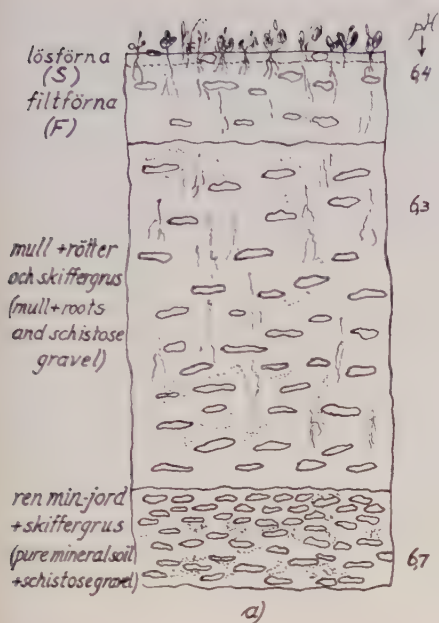 pH
lösförna
(S)
6,4
filtförna
(F)
6,3
mull + rötter
och skiffergrus
(mull + roots
and schistose
gravel)
ren min-jord
+ skiffergrus
(pure mineral soil
+ schistose gravel)
6,7
a)